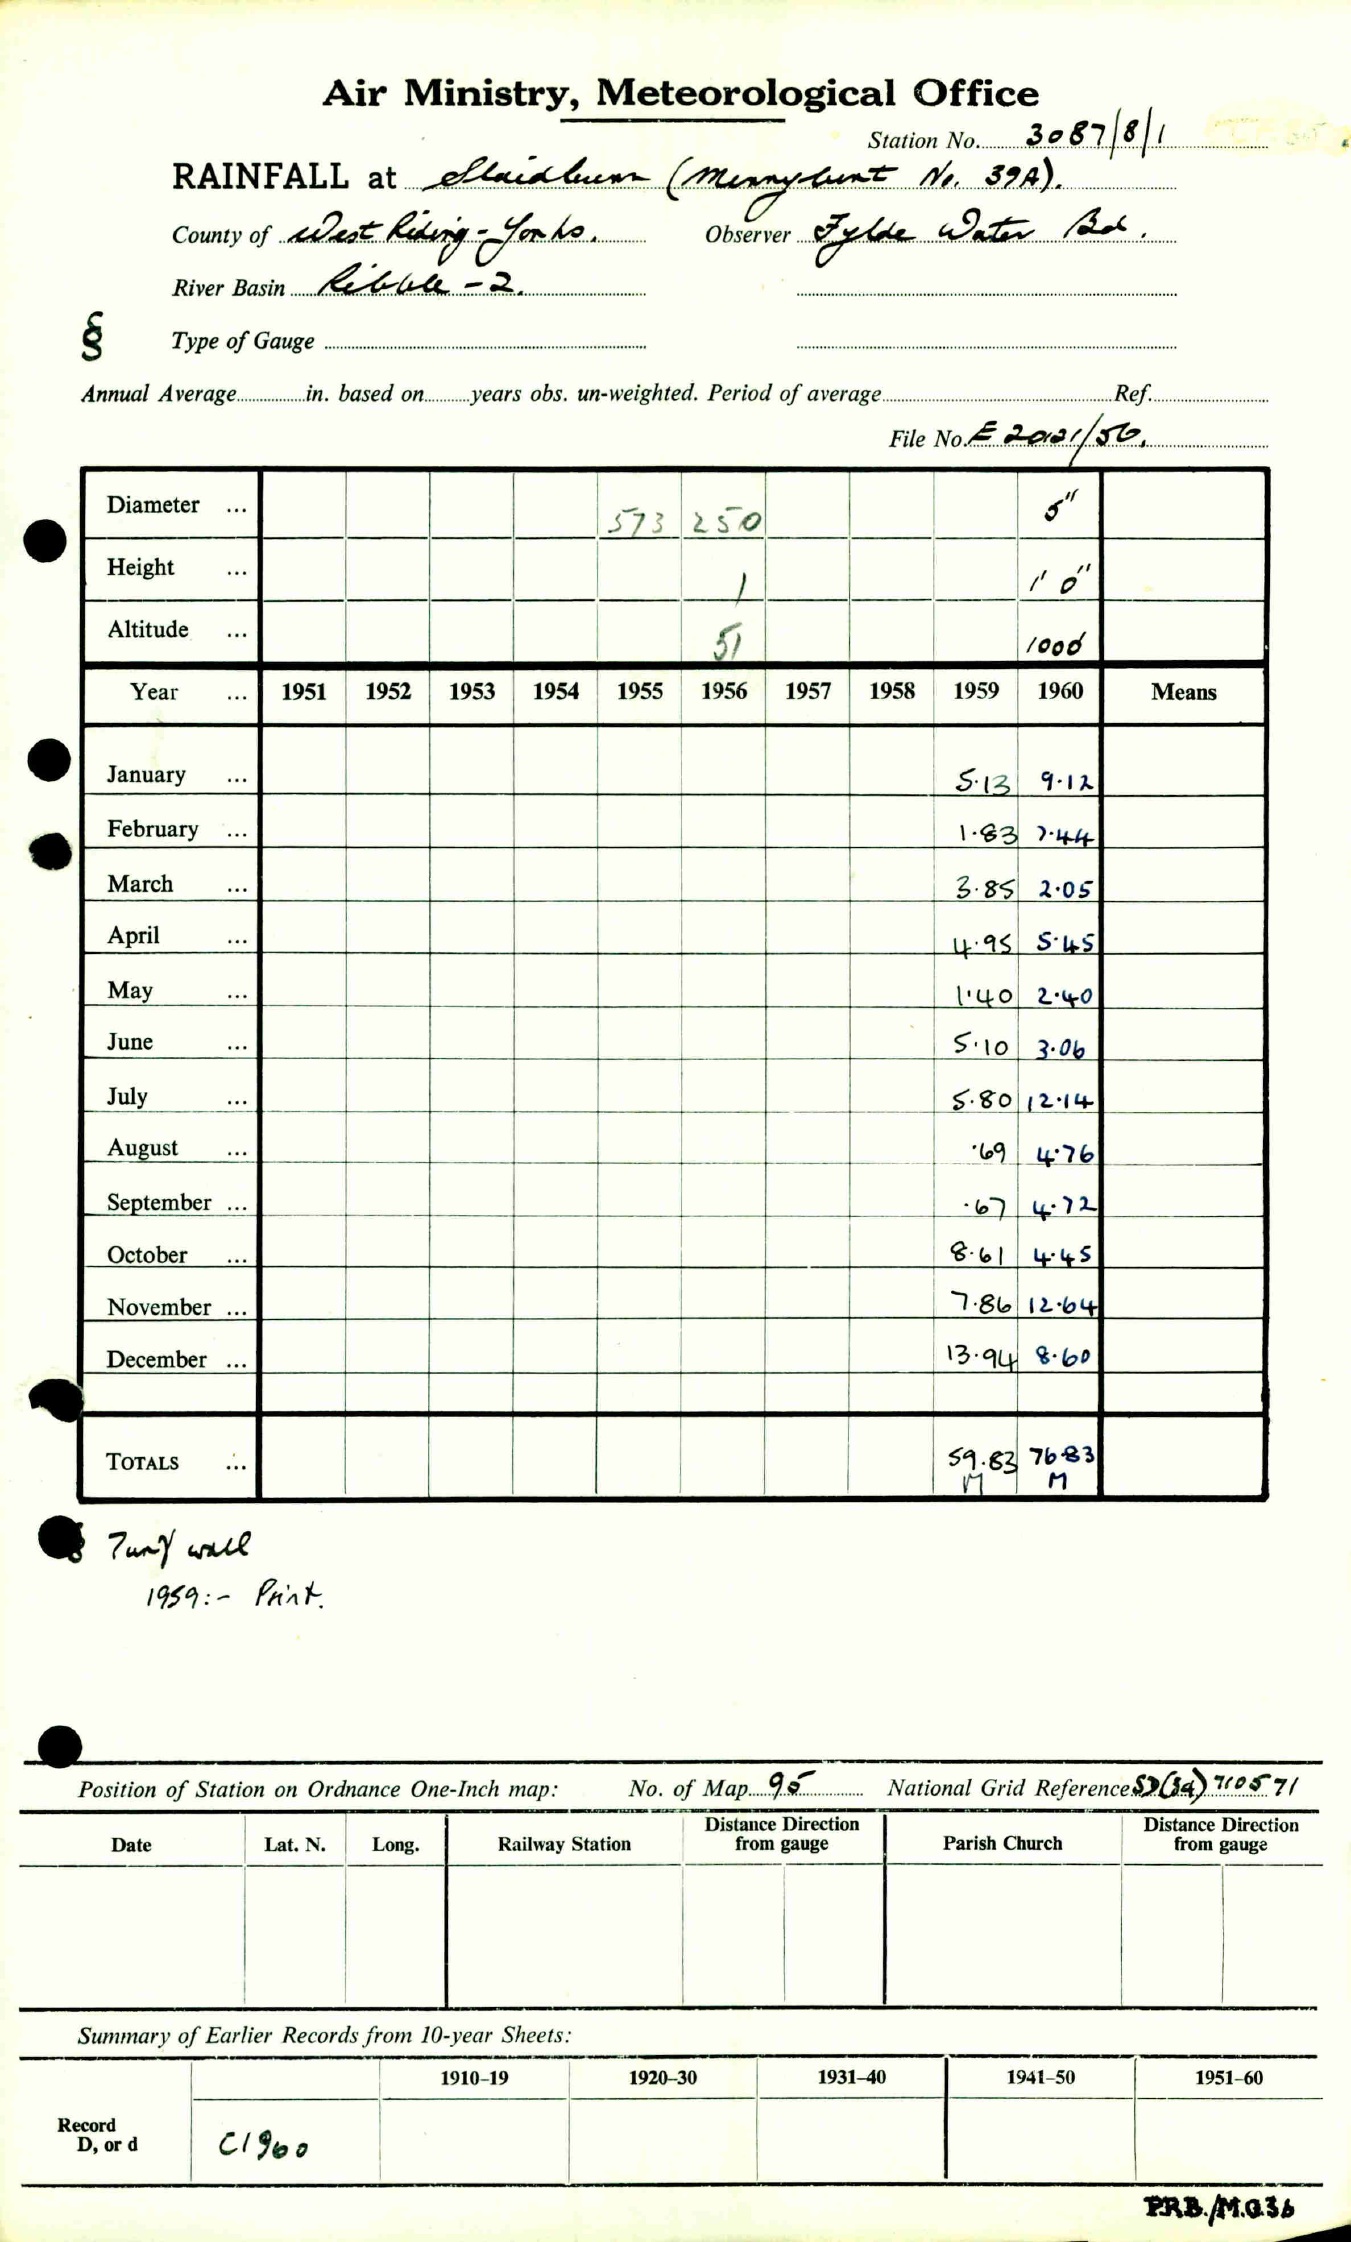 Air Ministry, Meteorological Office
Station No. 3087/8/1
RAINFALL at Slaidburn (Merrybent No. 39A).
County of West Riding - Yorks. Observer Fylde Water Bd.
River Basin Ribble - 2.
§ Type of Gauge
Annual Average in. based on years obs. un-weighted. Period of average Ref.
File No. E
Diameter ... 573 250 5"
Height ... 1 1' 0"
Altitude ... 51 1000
Year ... 1951 1952 1953 1954 1955 1956 1957 1958 1959 1960 Means
January ... 5.13 9.12
February ... 1.83 7.44
March ... 3.85 2.05
April ... 4.95 5.45
May ... 1.40 2.40
June ... 5.10 3.06
July ... 5.80 12.14
August ... .69 4.76
September ... .67 4.72
October ... 8.61 4.45
November ... 7.86 12.64
December ... 13.94 8.60
TOTALS ... 59.83 76.83
M M
§ Turf wall
1959:- Print.
Position of Station on Ordnance One-Inch map: No. of Map 95 National Grid Reference SD(34) 710571
Date Lat. N. Long. Railway Station Distance Direction from gauge Parish Church Distance Direction from gauge
Summary of Earlier Records from 10-year Sheets:
1910–19 1920–30 1931–40 1941–50 1951–60
Record
D, or d C1960
P.R.B./M.O.36